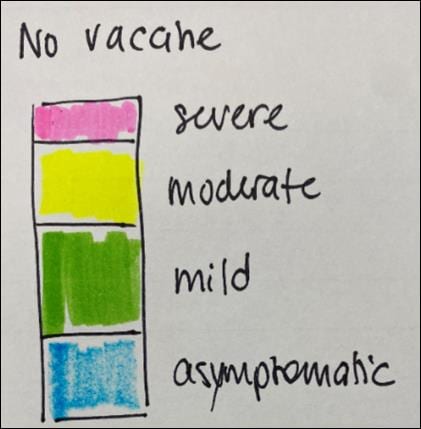 No vaccine
severe
moderate
mild
asymptomatic